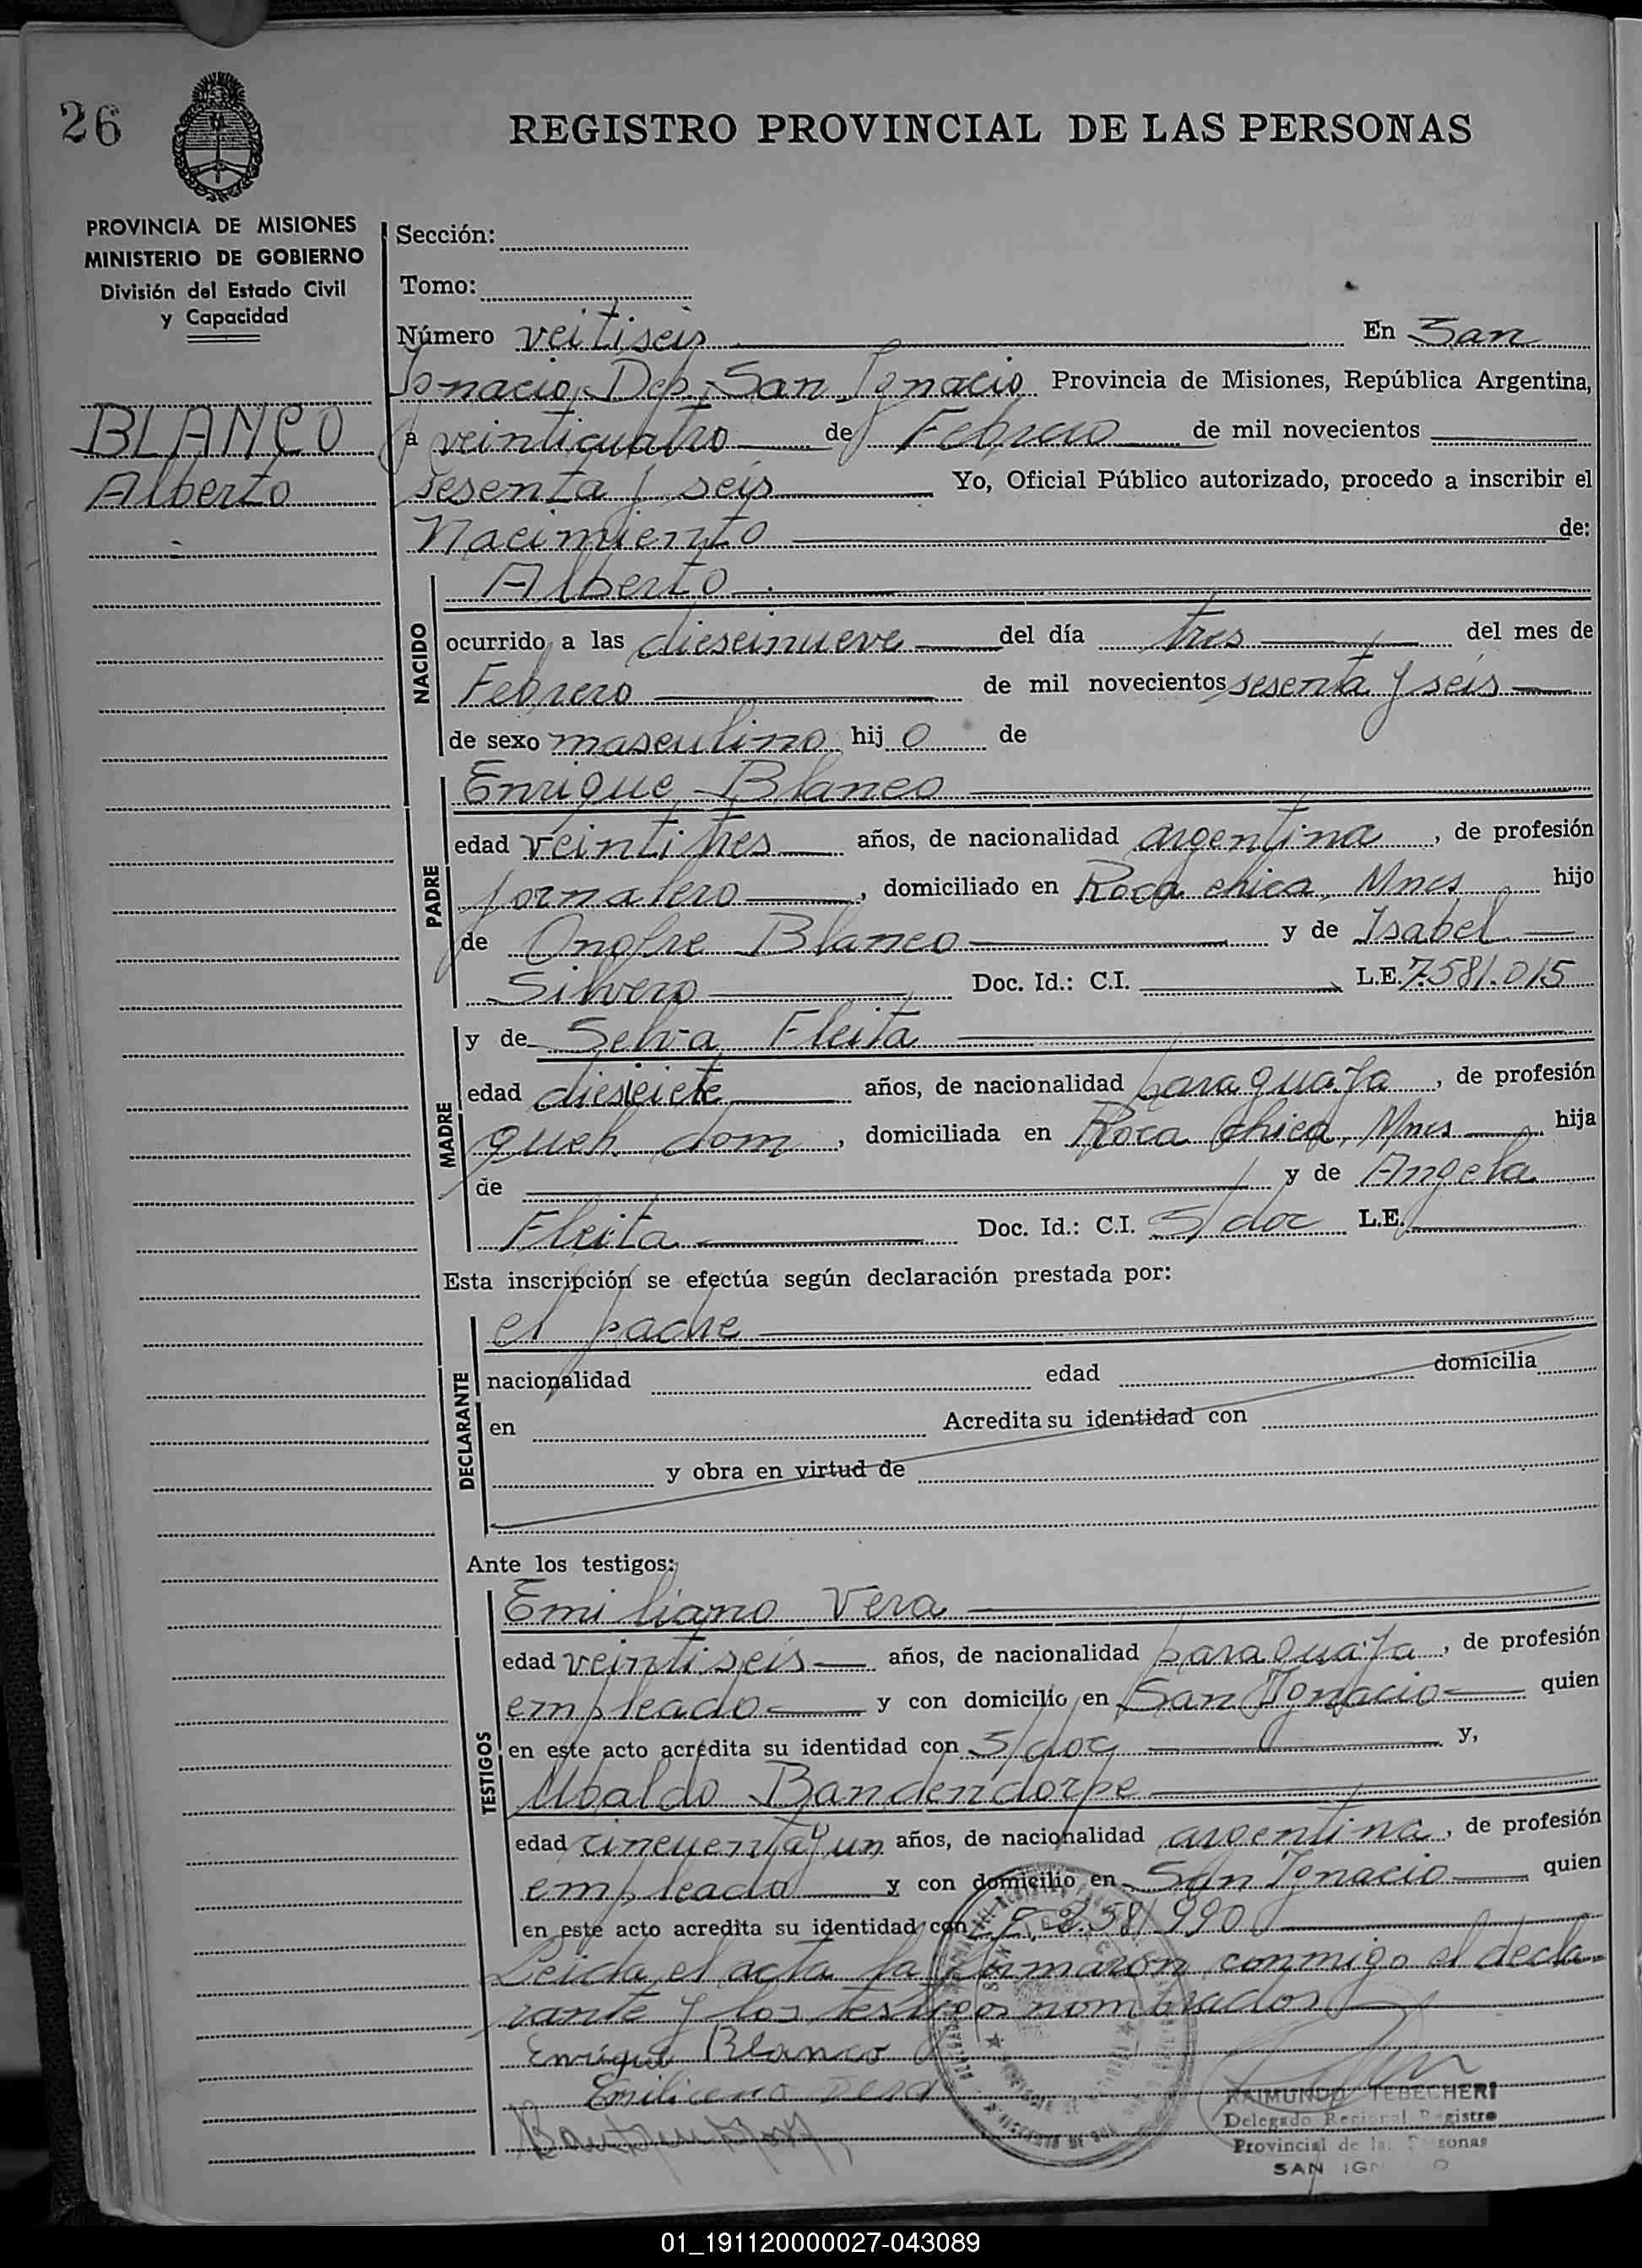 26
REGISTRO PROVINCIAL DE LAS PERSONAS
PROVINCIA DE MISIONES
MINISTERIO DE GOBIERNO
División del Estado Civil
y Capacidad
BLANCO
Alberto
Sección:
Tomo:
Número veitiseis En San
Ignacio, Dep. San Ignacio Provincia de Misiones, República Argentina,
a veinticuatro de Febrero de mil novecientos
sesenta y seis Yo, Oficial Público autorizado, procedo a inscribir el
Nacimiento de:
NACIDO
Alberto
ocurrido a las dieseinueve del día tres del mes de
Febrero de mil novecientos sesenta y seis
de sexo masculino hijo de
PADRE
Enrique Blanco
edad veintitres años, de nacionalidad argentina, de profesión
jornalero, domiciliado en Roca chica, Mnes hijo
de Onofre Blanco y de Isabel
Silvero Doc. Id.: C.I. L.E. 7.581.015
MADRE
y de Selva Fleita
edad diesieiete años, de nacionalidad paraguaya, de profesión
queh. dom, domiciliada en Roca chica, Mnes hija
de y de Angela
Fleita Doc. Id.: C.I. S/doc L.E.
Esta inscripción se efectúa según declaración prestada por:
DECLARANTE
el padre
nacionalidad edad domicilia
en Acredita su identidad con
y obra en virtud de
Ante los testigos:
TESTIGOS
Emiliano Vera
edad veintiseis años, de nacionalidad paraguaya, de profesión
empleado y con domicilio en San Ignacio quien
en este acto acredita su identidad con S/doc y,
Ubaldo Bandendorpe
edad cincuenta y un años, de nacionalidad argentina, de profesión
empleado y con domicilio en San Ignacio quien
en este acto acredita su identidad con 258 990
Leida el acta la firmaron conmigo el decla-
rante y los testigos nombrados
Enrique Blanco
Emiliano Vera
RAIMUNDO TEBECHERI
Delegado Regional Registro
Provincial de las Personas
SAN IGNACIO
01_191120000027-043089